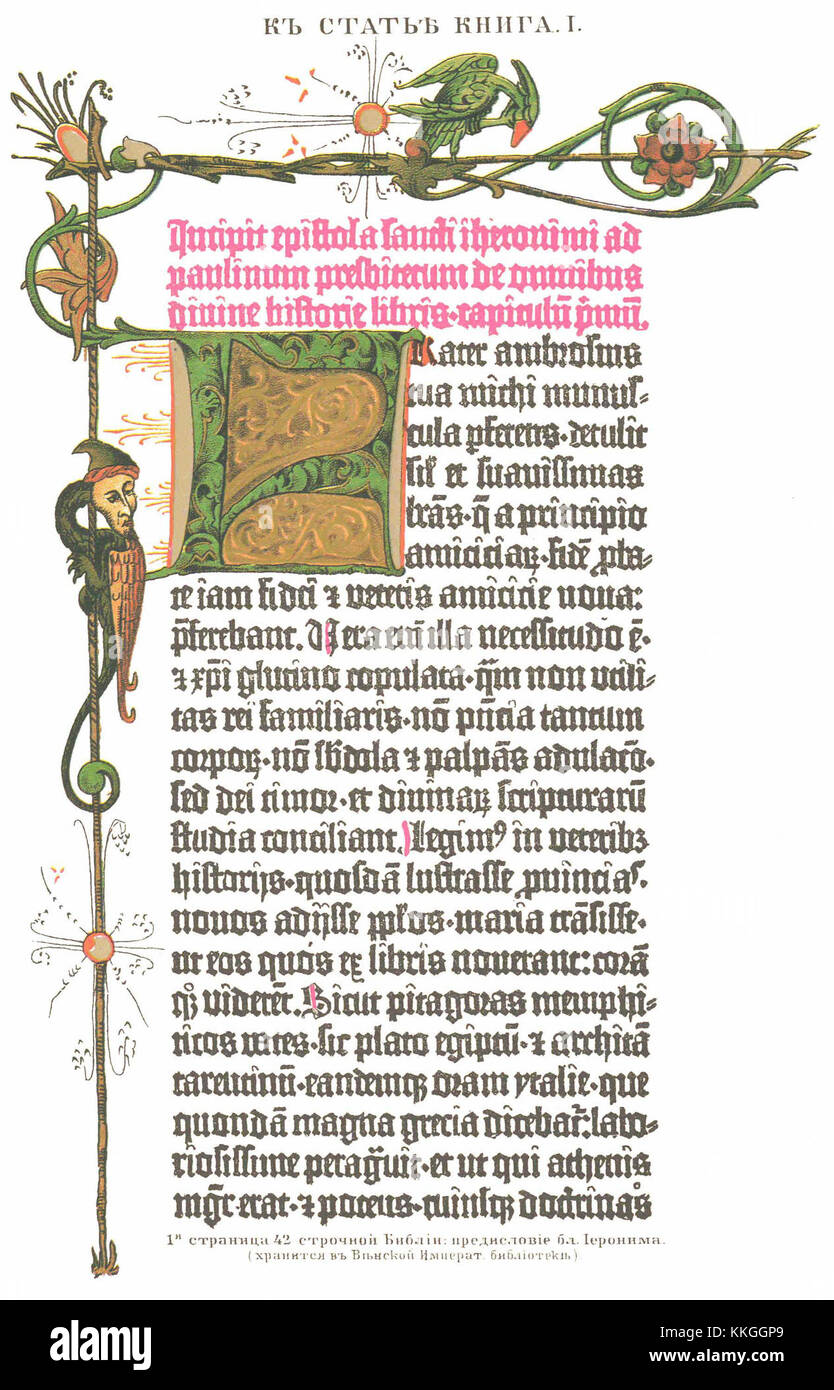 КЪ СТАТЬѢ КНИГА. I.
Incipit epistola sancti iheronimi ad
paulinum presbiterum de omnibus
divine historie libris·capitulū pͥmū.
Frater ambrosius
tua michi munus⸗
cula pferens·detulit
sil̄ et suavissimas
lrās·q̄ a principio
amiciciaꝝ·fidē ꝓba⸗
te iam fidei ⁊ veteris amicicie nova:
pferebant. Vera em̄ illa necessitudo ē·
⁊ xp̄i glutino copulata·qm̄ non utili⸗
tas rei familiaris·nō pn̄cia tantum
corpoꝝ·nō sb̄dola ⁊ palpās adulacō·
sed dei timor·et divinaꝝ scripturarū
studia conciliant. Legimꝰ in veteribꝫ
historijs·quosdā lustrasse ꝓvincias·
novos adijsse pp̄los·maria trāsisse·
ut eos quos ex libris noverant: corā
qꝫ viderēt. Sicut pitagoras memphi⸗
ticos vates·sic plato egiptū·⁊ architā
tarentinū·eandemqꝫ oram ytalie·que
quondā magna grecia dicebat᷑: labo⸗
riosissime peragͣvit·et ut qui athenis
mgr̄ erat·⁊ potens·cuiusqꝫ doctrinas
1ᴵᴵ страница 42 строчной Библіи: предисловіе бл. Іеронима.
(хранится въ Вѣнской Императ. библіотекѣ)
alamy
Image ID: KKGGP9
www.alamy.com